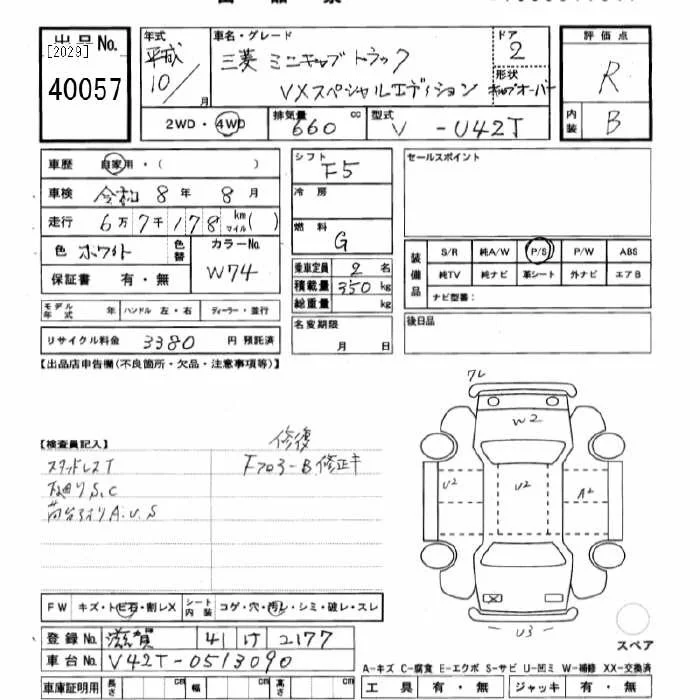 出品No.
[2029]
40057
年式
平成
10/
月
車名・グレード
三菱 ミニキャブトラック
VXスペシャルエディション
ドア
2
形状
キャブオーバー
評価点
R
内装
B
2WD・4WD
排気量
660 cc
型式
V -U42T
車歴 自家用・( )
車検 令和 8年 8月
走行 6万7千178 km マイル( )
色 ホワイト
色替
カラーNo.
W74
保証書 有・無
モデル年式 年 ハンドル 左・右 ディーラー・並行
リサイクル料金 3380 円 預託済
シフト
F5
冷房
燃料
G
乗車定員 2 名
積載量 350 kg
総重量 kg
名変期限
月 日
セールスポイント
装備品
S/R 純A/W P/S P/W ABS
純TV 純ナビ 革シート 外ナビ エアB
ナビ型番:
後日品
【出品店申告欄(不良箇所・欠品・注意事項等)】
【検査員記入】
修復
スタッドレスT
Fクロス-B修正キ
下回りS.C
荷台うちりA.U.S
ワレ
W2
U2
U2
A2
U3
スペア
FW キズ・トビ石・割レX
シート内装 コゲ・穴・汚レ・シミ・破レ・スレ
登録No. 滋賀 41 け 2177
車台No. V42T-0513090
車庫証明用 長さ cm 幅 cm 高さ cm
A-キズ C-腐食 E-エクボ S-サビ U-凹ミ W-補修 XX-交換済
工具 有・無 ジャッキ 有・無